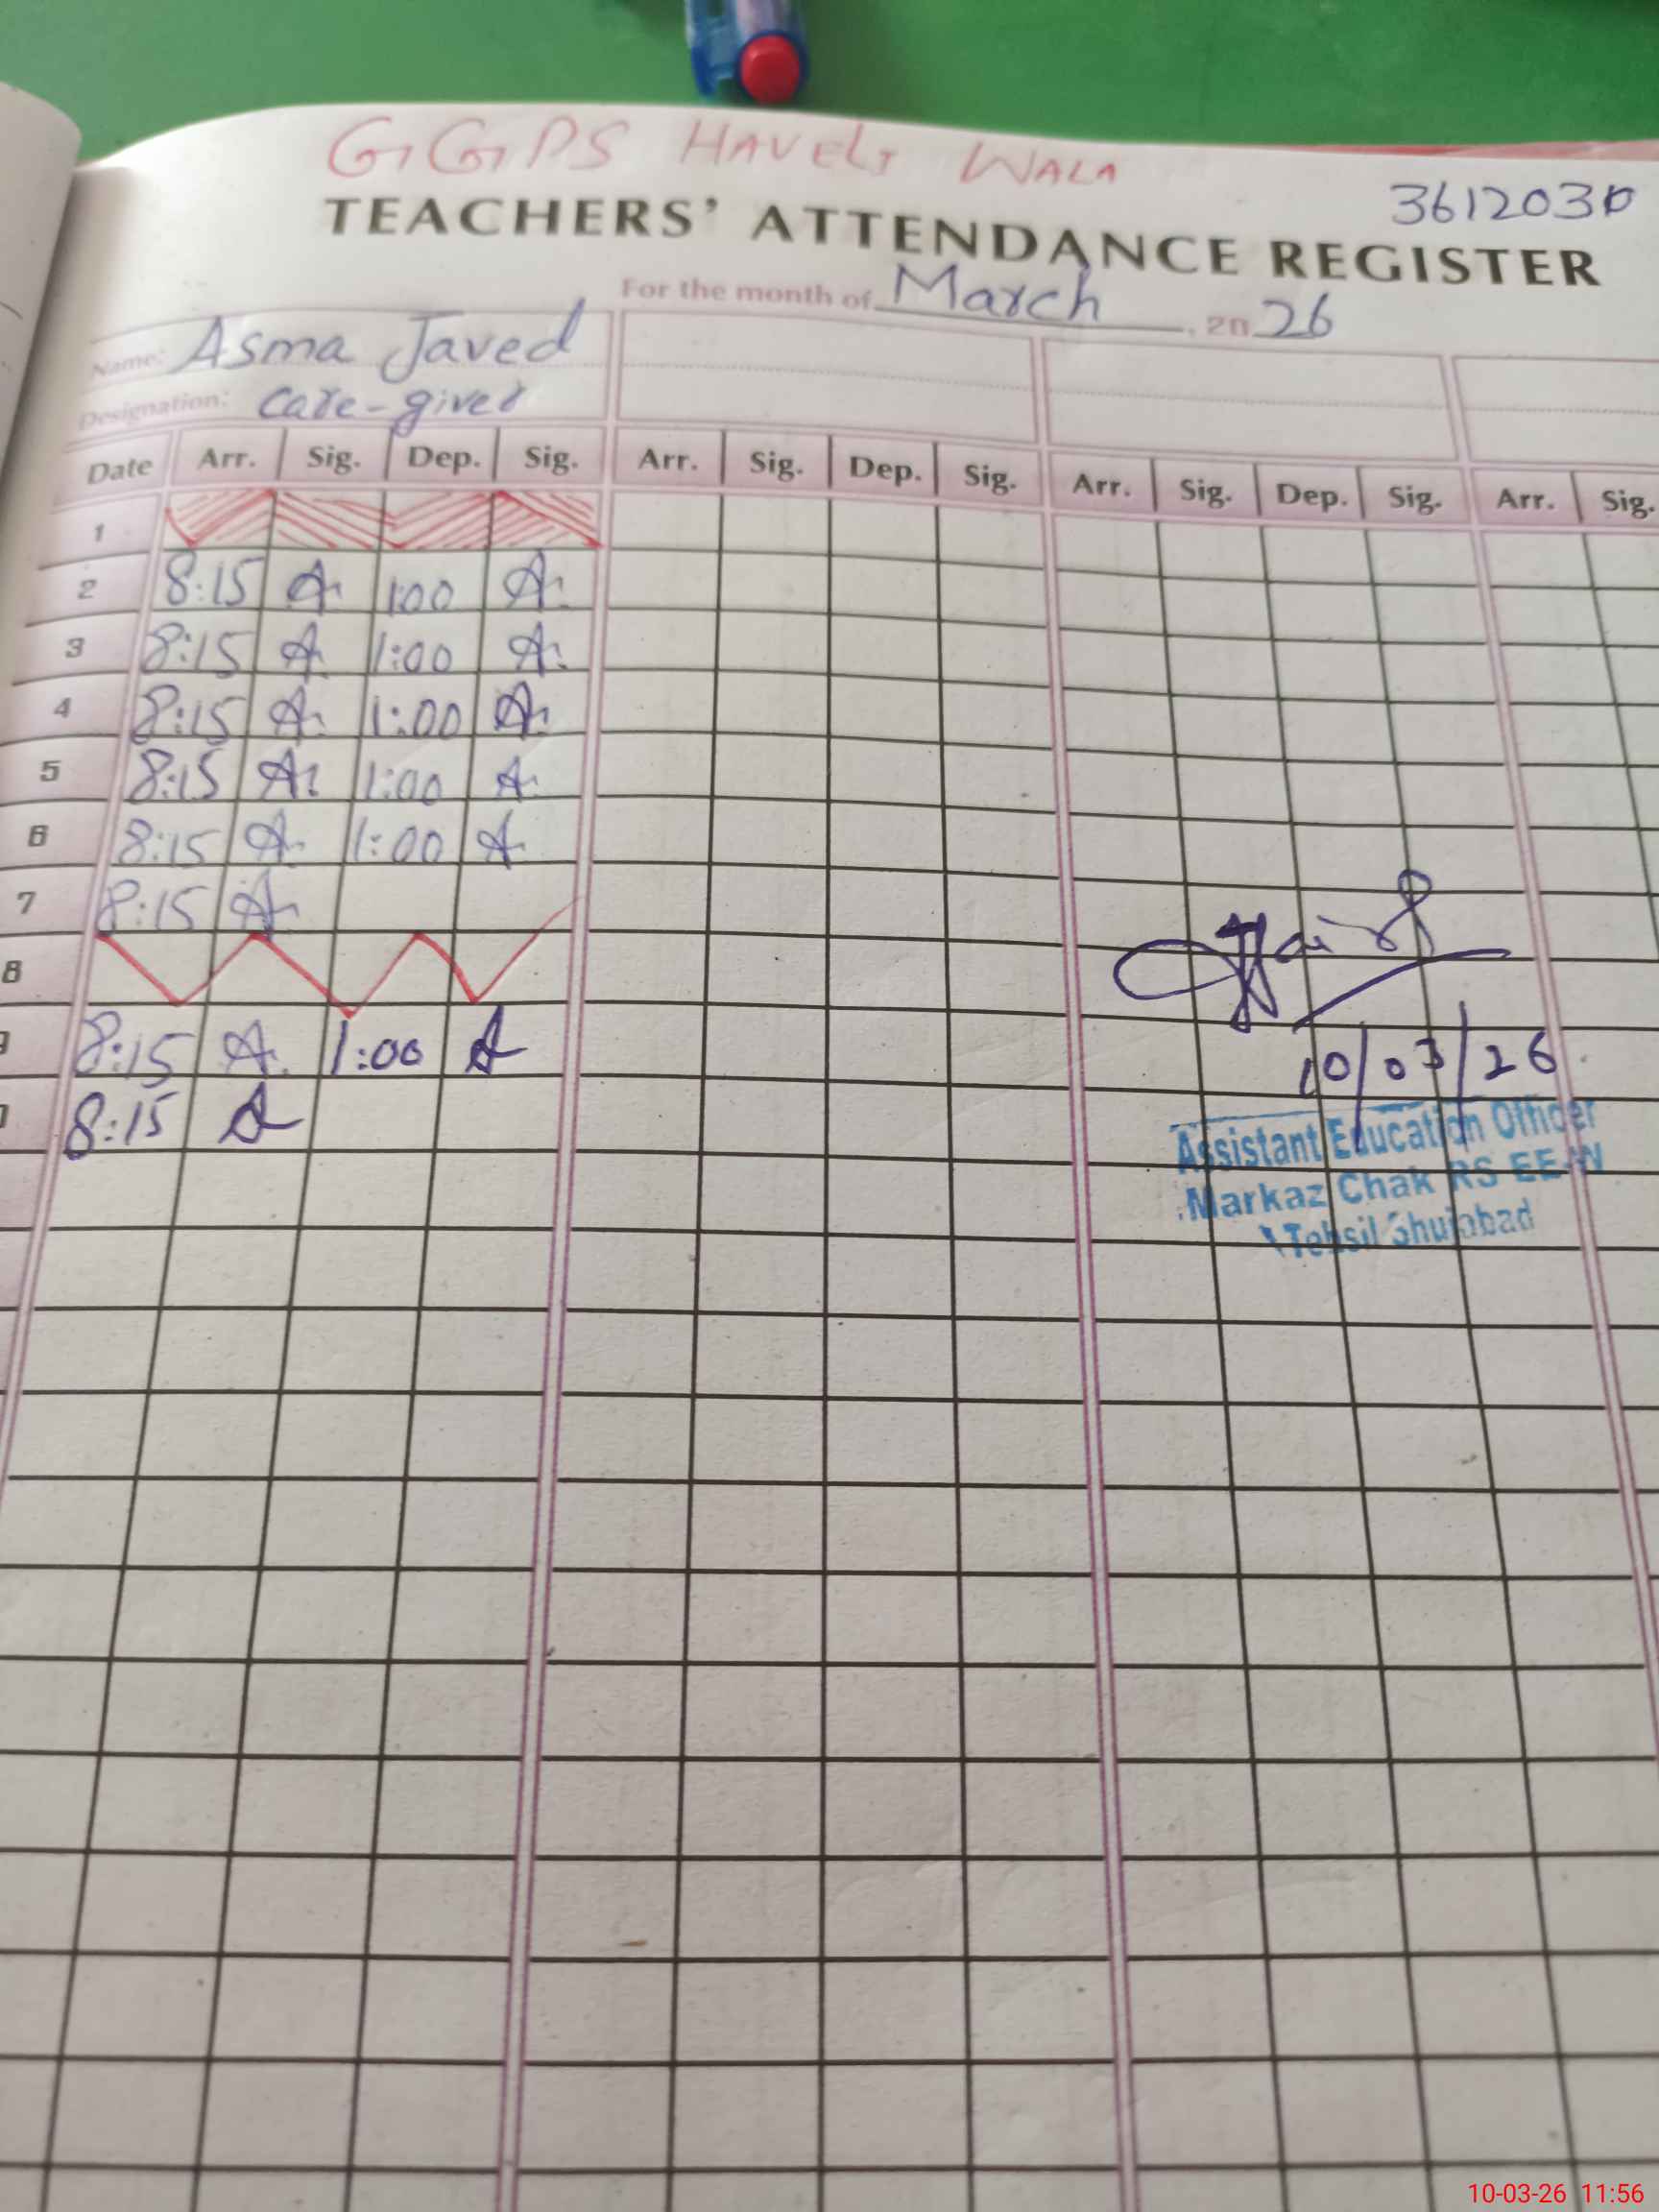 GGPS HAVELI WALA
3612030
TEACHERS' ATTENDANCE REGISTER
For the month of March, 2026
Name: Asma Javed
Designation: Care-giver
Date Arr. Sig. Dep. Sig. Arr. Sig. Dep. Sig. Arr. Sig. Dep. Sig. Arr. Sig.
1
2 8:15 A. 1:00 A.
3 8:15 A. 1:00 A.
4 8:15 A. 1:00 A.
5 8:15 A. 1:00 A.
6 8:15 A. 1:00 A.
7 8:15 A.
8
9 8:15 A. 1:00 A
8:15 A
10/03/26
Assistant Education Officer
Markaz Chak RS EE-W
Tehsil Shujabad
10-03-26 11:56